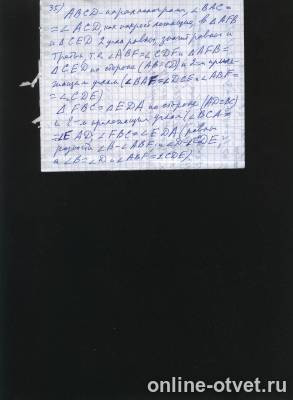 35) ABCD - параллелограмм, ∠BAC =
= ∠ACD как накрест лежащие, в △AFB
и △CED 2 угла равны, значит равны и
третьи, т.е. ∠ABF = ∠CDE и △AFB =
△CED по стороне (AB = CD) и 2-м прилежащим
углам (∠BAF = ∠DCE и ∠ABF =
= ∠CDE).
△FBC = △EDA по стороне (AD = BC)
и 2-м прилежащим углам (∠BCA =
= ∠EAD, ∠FBC = ∠EDA (равны
разности ∠B - ∠ABF и ∠D - ∠CDE,
а ∠B = ∠D и ∠ABF = ∠CDE).
online-otvet.ru